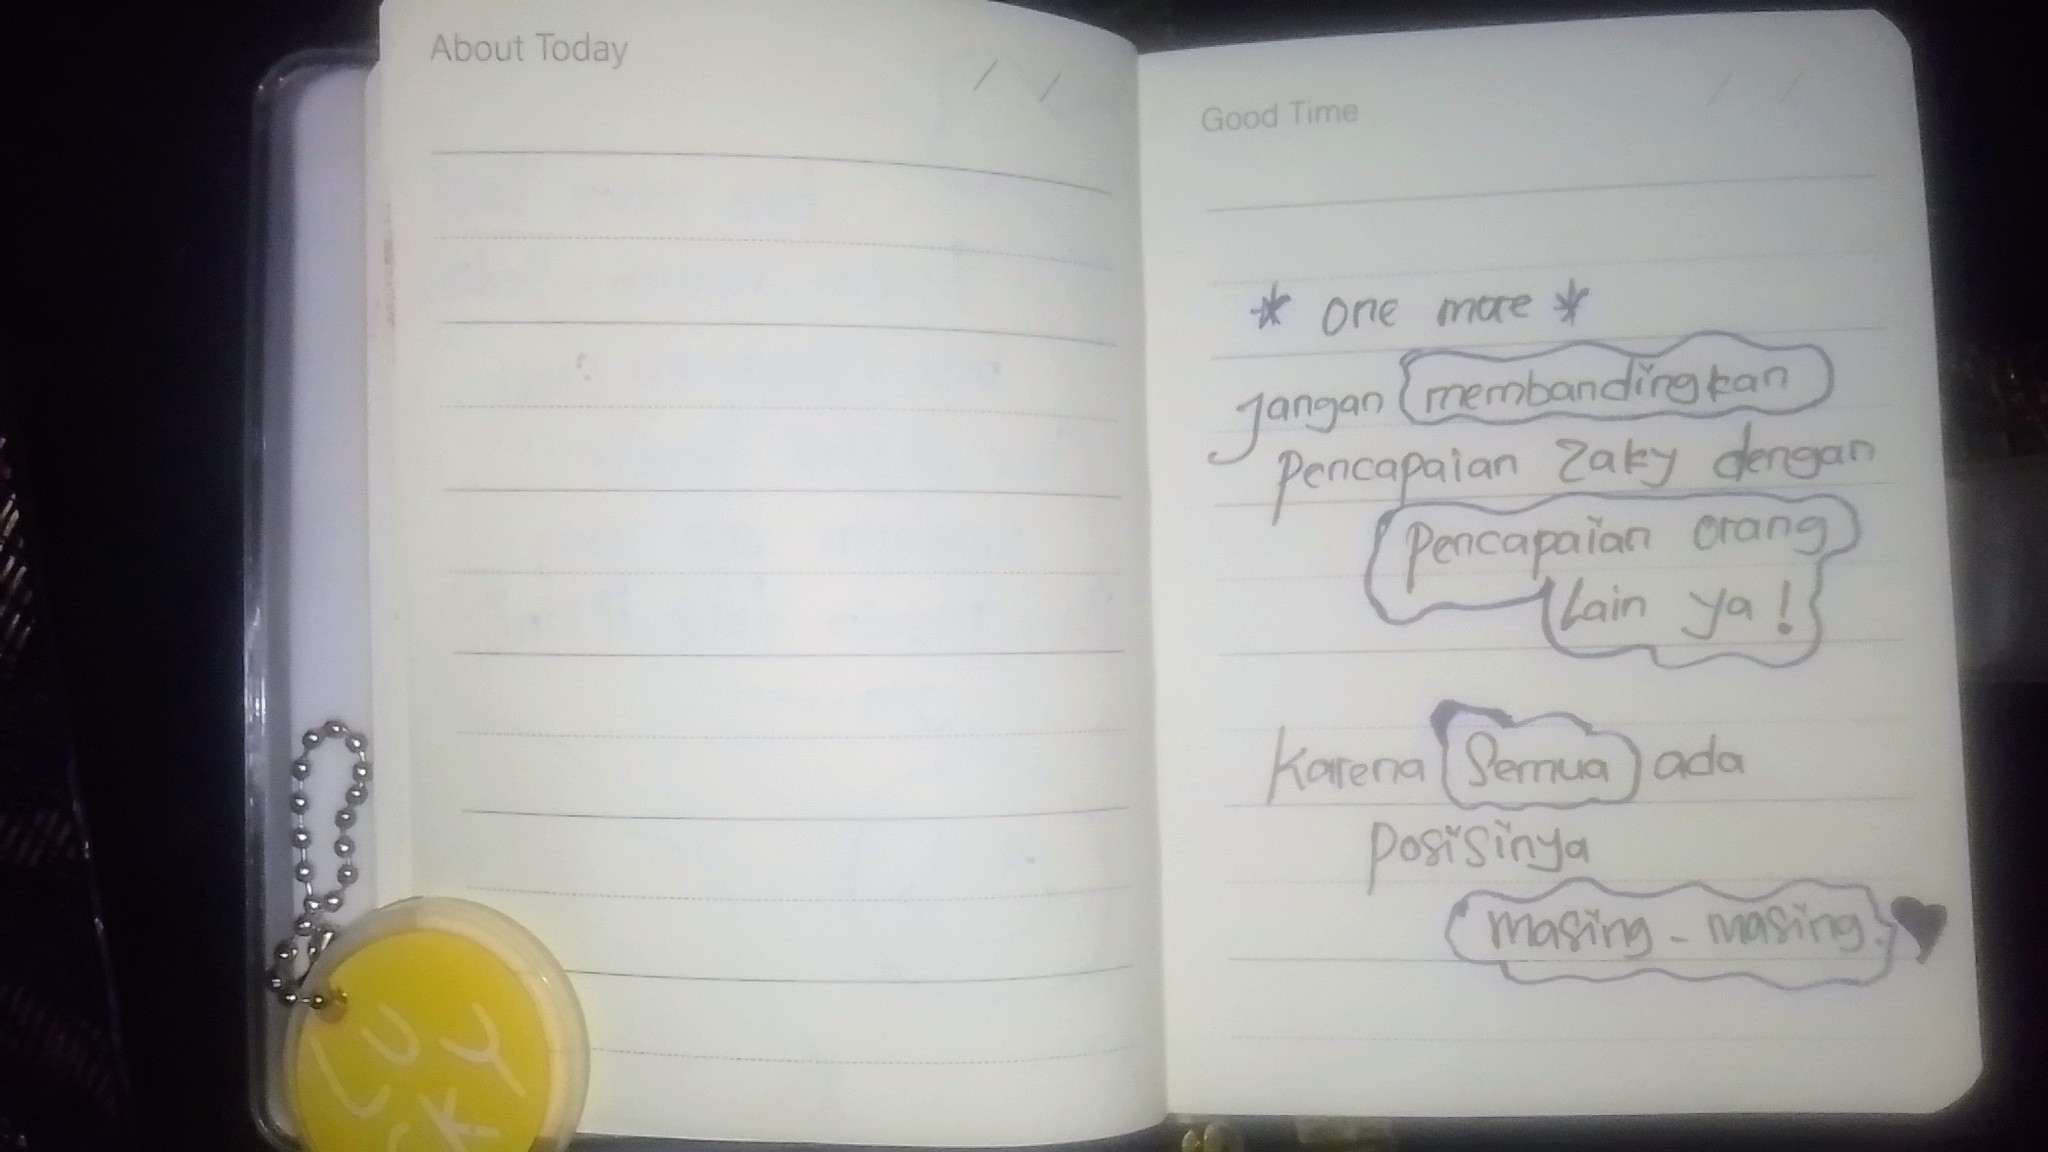 About Today
/ /
LUCKY
Good Time
/ /
* one more *
Jangan membandingkan
pencapaian Zaky dengan
pencapaian orang
Lain ya!
Karena Semua ada
posisinya
masing - masing.